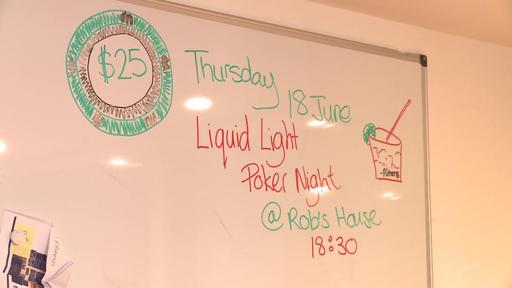 $25
Thursday
18 June
Liquid Light
Poker Night
@ Rob's House
18:30